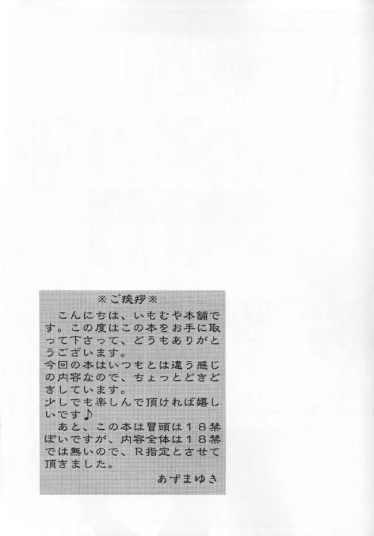 ※ご挨拶※
　こんにちは、いもむや本舗で
す。この度はこの本をお手に取
って下さって、どうもありがと
うございます。
今回の本はいつもとは違う感じ
の内容なので、ちょっとどきど
きしています。
少しでも楽しんで頂ければ嬉し
いです♪
　あと、この本は冒頭は１８禁
ぽいですが、内容全体は１８禁
では無いので、Ｒ指定とさせて
頂きました。
あずまゆき